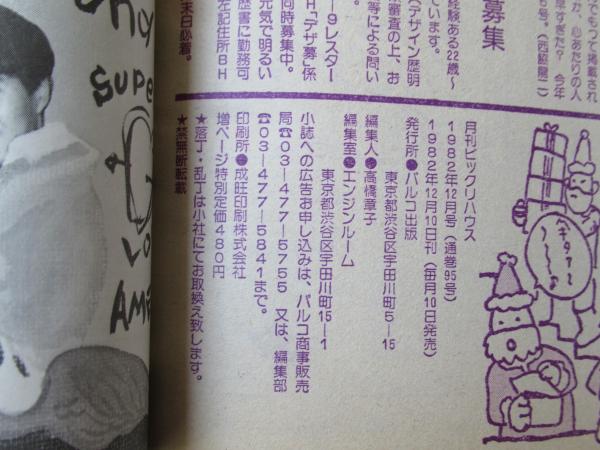 でもって掲載され
か、心あたりの人
早すぎた? 今年
6号。(西脇龍二)
募集
経験ある22歳〜
ています。
「デザイン歴明
審査の上、お
等による問い
9レスター
H、「デザ募」係
同時募集中。
元気で明るい
歴書に勤務可
左記住所BH
末日必着。
月刊ビックリハウス
1982年12月号(通巻95号)
1982年12月10日刊(毎月10日発売)
発行所●パルコ出版
東京都渋谷区宇田川町5—15
編集人●高橋章子
編集室●エンジンルーム
東京都渋谷区宇田川町15—1
小誌への広告お申し込みは、パルコ商事販売
局☎03—477—5755 又は、編集部
☎03—477—5841まで。
印刷所●成旺印刷株式会社
増ページ特別定価480円
★落丁・乱丁は小社にてお取換え致します。
★禁無断転載
SUPE
LO
AMA